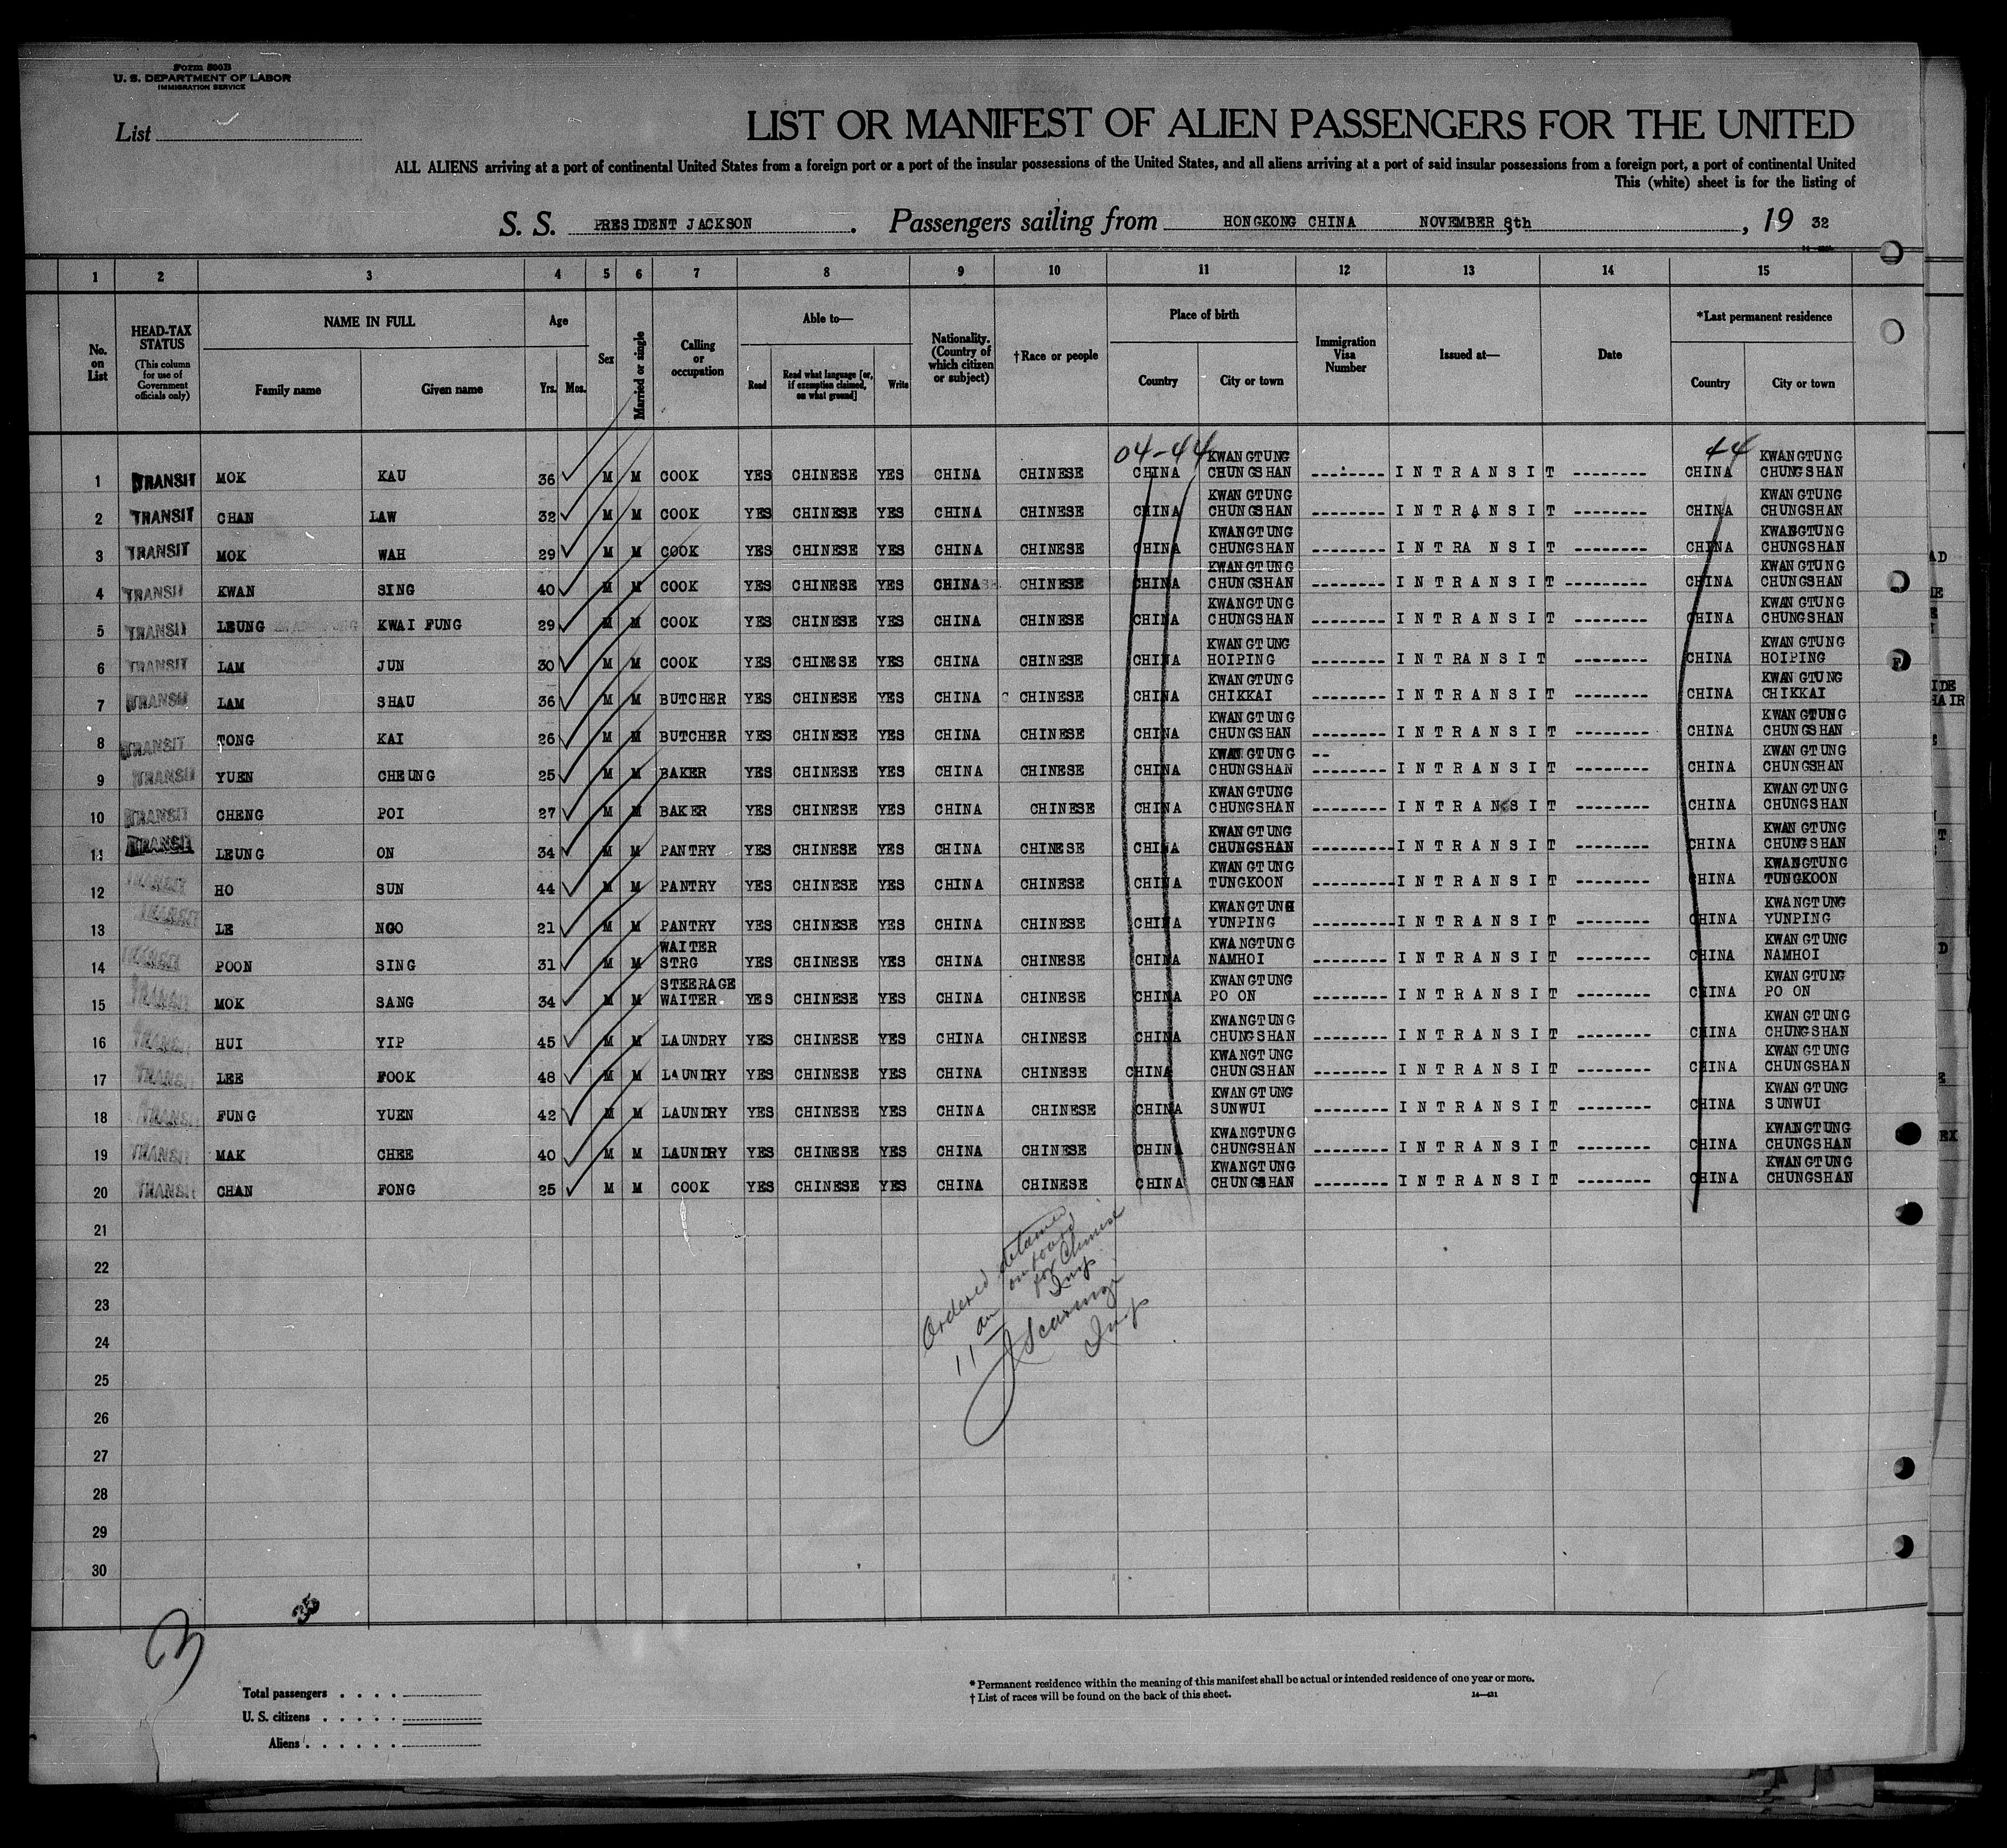 Form 500B
U. S. DEPARTMENT OF LABOR
IMMIGRATION SERVICE
List
LIST OR MANIFEST OF ALIEN PASSENGERS FOR THE UNITED
ALL ALIENS arriving at a port of continental United States from a foreign port or a port of the insular possessions of the United States, and all aliens arriving at a port of said insular possessions from a foreign port, a port of continental United
This (white) sheet is for the listing of
S. S. PRESIDENT JACKSON . Passengers sailing from HONGKONG CHINA NOVEMBER 8th , 19 32
1 2 3 4 5 6 7 8 9 10 11 12 13 14 15
No. on List HEAD-TAX STATUS (This column for use of Government officials only) NAME IN FULL Family name Given name Age Yrs. Mos. Sex Married or single Calling or occupation Able to— Read Read what language [or, if exemption claimed, on what ground] Write Nationality. (Country of which citizen or subject) †Race or people Place of birth Country City or town Immigration Visa Number Issued at— Date *Last permanent residence Country City or town
04-44 44
1 TRANSIT MOK KAU 36 M M COOK YES CHINESE YES CHINA CHINESE CHINA KWANGTUNG CHUNGSHAN -------- I N T R A N S I T -------- CHINA KWANGTUNG CHUNGSHAN
2 TRANSIT CHAN LAW 32 M M COOK YES CHINESE YES CHINA CHINESE CHINA KWANGTUNG CHUNGSHAN -------- I N T R A N S I T -------- CHINA KWANGTUNG CHUNGSHAN
3 TRANSIT MOK WAH 29 M M COOK YES CHINESE YES CHINA CHINESE CHINA KWANGTUNG CHUNGSHAN -------- I N T R A N S I T -------- CHINA KWANGTUNG CHUNGSHAN
4 TRANSIT KWAN SING 40 M M COOK YES CHINESE YES CHINA CHINESE CHINA KWANGTUNG CHUNGSHAN -------- I N T R A N S I T -------- CHINA KWANGTUNG CHUNGSHAN
5 TRANSIT LEUNG KWAI FUNG 29 M M COOK YES CHINESE YES CHINA CHINESE CHINA KWANGTUNG CHUNGSHAN -------- I N T R A N S I T -------- CHINA KWANGTUNG CHUNGSHAN
6 TRANSIT LAM JUN 30 M M COOK YES CHINESE YES CHINA CHINESE CHINA KWANGTUNG HOIPING -------- I N T R A N S I T -------- CHINA KWANGTUNG HOIPING
7 TRANSIT LAM SHAU 36 M M BUTCHER YES CHINESE YES CHINA CHINESE CHINA KWANGTUNG CHIKKAI -------- I N T R A N S I T -------- CHINA KWANGTUNG CHIKKAI
8 TRANSIT TONG KAI 26 M M BUTCHER YES CHINESE YES CHINA CHINESE CHINA KWANGTUNG CHUNGSHAN -------- I N T R A N S I T -------- CHINA KWANGTUNG CHUNGSHAN
9 TRANSIT YUEN CHEUNG 25 M M BAKER YES CHINESE YES CHINA CHINESE CHINA KWANGTUNG CHUNGSHAN -- -------- I N T R A N S I T -------- CHINA KWANGTUNG CHUNGSHAN
10 TRANSIT CHENG POI 27 M M BAKER YES CHINESE YES CHINA CHINESE CHINA KWANGTUNG CHUNGSHAN -------- I N T R A N S I T -------- CHINA KWANGTUNG CHUNGSHAN
11 TRANSIT LEUNG ON 34 M M PANTRY YES CHINESE YES CHINA CHINESE CHINA KWANGTUNG CHUNGSHAN -------- I N T R A N S I T -------- CHINA KWANGTUNG CHUNGSHAN
12 TRANSIT HO SUN 44 M M PANTRY YES CHINESE YES CHINA CHINESE CHINA KWANGTUNG TUNGKOON -------- I N T R A N S I T -------- CHINA KWANGTUNG TUNGKOON
13 TRANSIT LE NGO 21 M M PANTRY YES CHINESE YES CHINA CHINESE CHINA KWANGTUNG YUNPING -------- I N T R A N S I T -------- CHINA KWANGTUNG YUNPING
14 TRANSIT POON SING 31 M M WAITER STRG YES CHINESE YES CHINA CHINESE CHINA KWANGTUNG NAMHOI -------- I N T R A N S I T -------- CHINA KWANGTUNG NAMHOI
15 TRANSIT MOK SANG 34 M M STEERAGE WAITER YES CHINESE YES CHINA CHINESE CHINA KWANGTUNG PO ON -------- I N T R A N S I T -------- CHINA KWANGTUNG PO ON
16 TRANSIT HUI YIP 45 M M LAUNDRY YES CHINESE YES CHINA CHINESE CHINA KWANGTUNG CHUNGSHAN -------- I N T R A N S I T -------- CHINA KWANGTUNG CHUNGSHAN
17 TRANSIT LEE FOOK 48 M M LAUNDRY YES CHINESE YES CHINA CHINESE CHINA KWANGTUNG CHUNGSHAN -------- I N T R A N S I T -------- CHINA KWANGTUNG CHUNGSHAN
18 TRANSIT FUNG YUEN 42 M M LAUNDRY YES CHINESE YES CHINA CHINESE CHINA KWANGTUNG SUNWUI -------- I N T R A N S I T -------- CHINA KWANGTUNG SUNWUI
19 TRANSIT MAK CHEE 40 M M LAUNDRY YES CHINESE YES CHINA CHINESE CHINA KWANGTUNG CHUNGSHAN -------- I N T R A N S I T -------- CHINA KWANGTUNG CHUNGSHAN
20 TRANSIT CHAN FONG 25 M M COOK YES CHINESE YES CHINA CHINESE CHINA KWANGTUNG CHUNGSHAN -------- I N T R A N S I T -------- CHINA KWANGTUNG CHUNGSHAN
21
22
23
24
25
26
27
28
29
30
Ordered detained
on board
for Chinese
Insp
Insp
Total passengers . . . .
U. S. citizens . . . . .
Aliens . . . . . .
* Permanent residence within the meaning of this manifest shall be actual or intended residence of one year or more.
† List of races will be found on the back of this sheet.
14—431